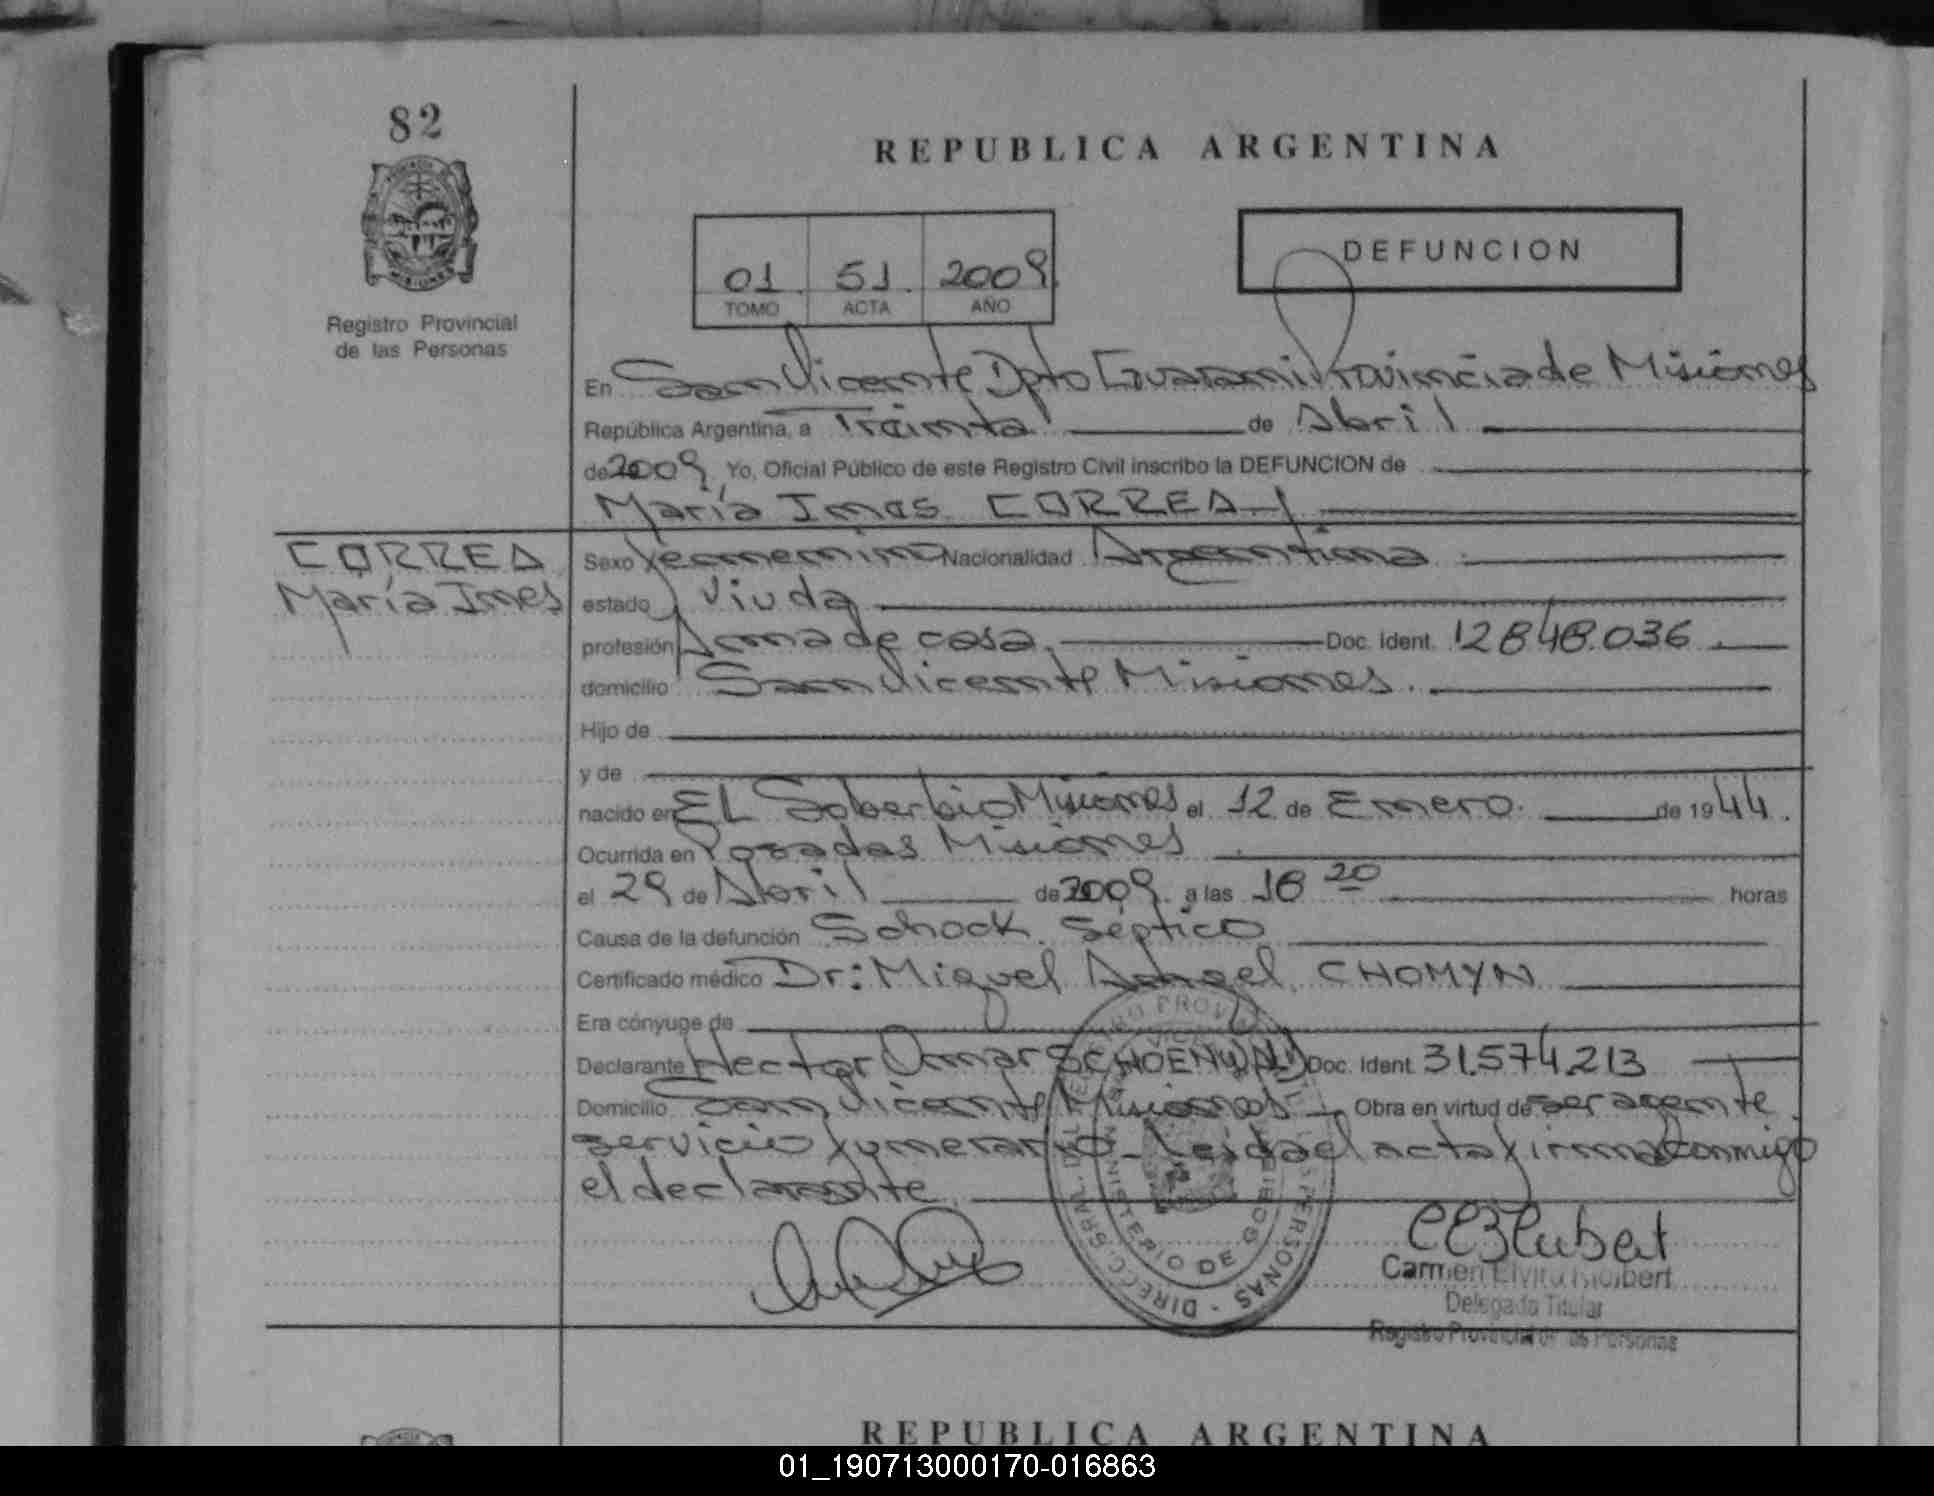 82
REPUBLICA ARGENTINA
DEFUNCION
01 51 2009
TOMO ACTA AÑO
Registro Provincial
de las Personas
En San Vicente Dpto Guarani Provincia de Misiones
República Argentina, a Treinta de Abril
de 2009 Yo, Oficial Público de este Registro Civil inscribo la DEFUNCION de
María Ines CORREA
CORREA
María Ines
Sexo Femenino Nacionalidad Argentina
estado Viuda
profesión Ama de casa Doc. Ident. 12848.036
domicilio San Vicente Misiones.
Hijo de
y de
nacido en EL Soberbio Misiones el 12 de Enero de 1944.
Ocurrida en Posadas Misiones
el 29 de Abril de 2009 a las 18 20 horas
Causa de la defunción Schock Séptico
Certificado médico Dr: Miguel Angel CHOMYN
Era cónyuge de
Declarante Hector Omar Doc. Ident. 31.574.213
Domicilio San Vicente Misiones Obra en virtud de ser agente
servicio funerario - Leida el acta firma conmigo
el declarante
DIRECC. GRAL. DEL REGISTRO PROV. PERSONAS
MINISTERIO DE GOBIE
Carmen Elvira
Delegada Titular
Registro Provincial de las Personas
REPUBLICA ARGENTINA
01_190713000170-016863